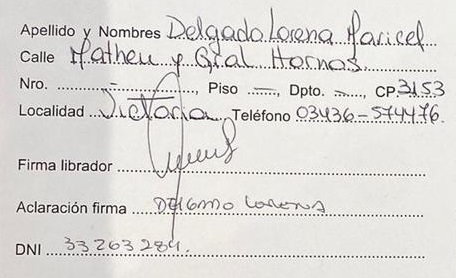 Apellido y Nombres Delgado Lorena Maricel
Calle Matheu y Gral Hornos
Nro. ........ –........, Piso .—..., Dpto. .—..., CP.3153
Localidad ..Victoria.. Teléfono 03436-574476.
Firma librador
Aclaración firma DELGADO LORENA
DNI ...33263284.